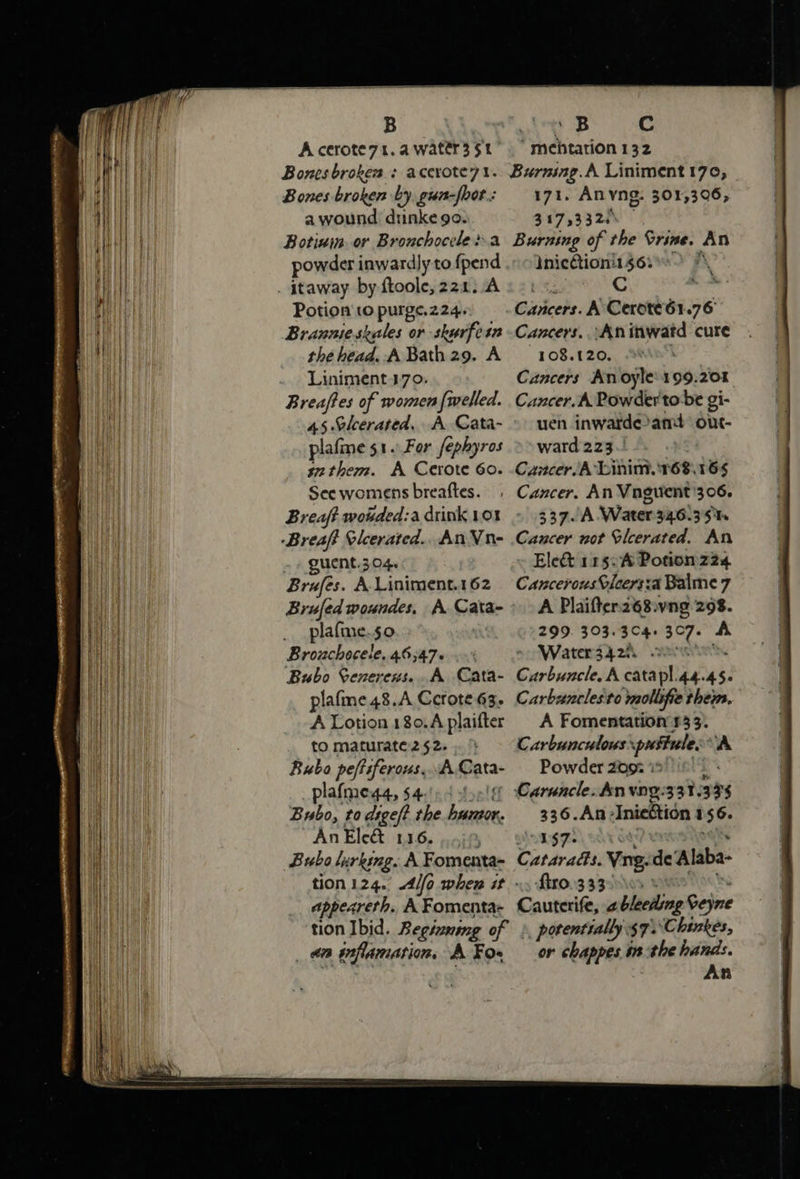 B
A cerote 71. a water 351
Bones broken : a cerote 71.
Bones broken by gun-ſhot :
a wound drinke 90.
Botium or Bronchocele : a
powder inwardly to ſpend
it away by ſtoole, 221. A
Potion to purge. 224.
Brannie skales or skurfe in
the head. A Bath 29. A
Liniment 170.
Breaſtes of women ſwelled.
45. Vlcerated. A Cata-
plaſme 51. For ſephyros
in them. A Cerote 60.
See womens breaſtes.
Breaſt wouded: a drink 101
Breaſt Vlcerated. An Vn-
guent. 304.
Bruſes. A Liniment. 162
Bruſed woundes. A Cata-
plaſme. 50
Bronchocele. 46,47.
Bubo Venereus. A Cata-
plaſme 48. A Cerote 63.
A Lotion 180. A plaiſter
to maturate 252.
Bubo peſtiferous. A Cata-
plaſme 44, 54.
Bubo, to digeſt the humor.
An Elect 116.
Bubo lurking. A Fomenta-
tion 124. Alſo when it
appeareth. A Fomenta-
tion Ibid. Beginning of
an inflamation. A Fo-
B C
mentation 132
Burning. A Liniment 170,
171. An vng. 301,306,
317,332.
Burning of the Vrine. An
Iniection 156.
C
Cancers. A Cerote 61.76
Cancers. An inward cure
108.120.
Cancers An oyle 199.201
Cancer. A Powder to be gi-
uen inwarde and out-
ward 223.
Cancer. A Linim. 168.165
Cancer. An Vnguent 306.
337. A Water 346.351.
Cancer not Vlcerated. An
Elect 115. A Potion 224
Cancerous Vlcers: a Balme 7
A Plaiſter 268. vng 298.
299. 303. 304. 307. A
Water 342.
Carbuncle. A catapl. 44.45.
Carbuncles to mollifie them.
A Fomentation 133.
Carbunculous puſtule. A
Powder 209.
Caruncle. An vng. 331.335
336. An Iniection 156.
157.
Cataracts. Vng. de Alaba-
ſtro. 333
Cauteriſe, a bleeding Veyne
potentially 57. Chinkes,
or chappes in the hands.
An